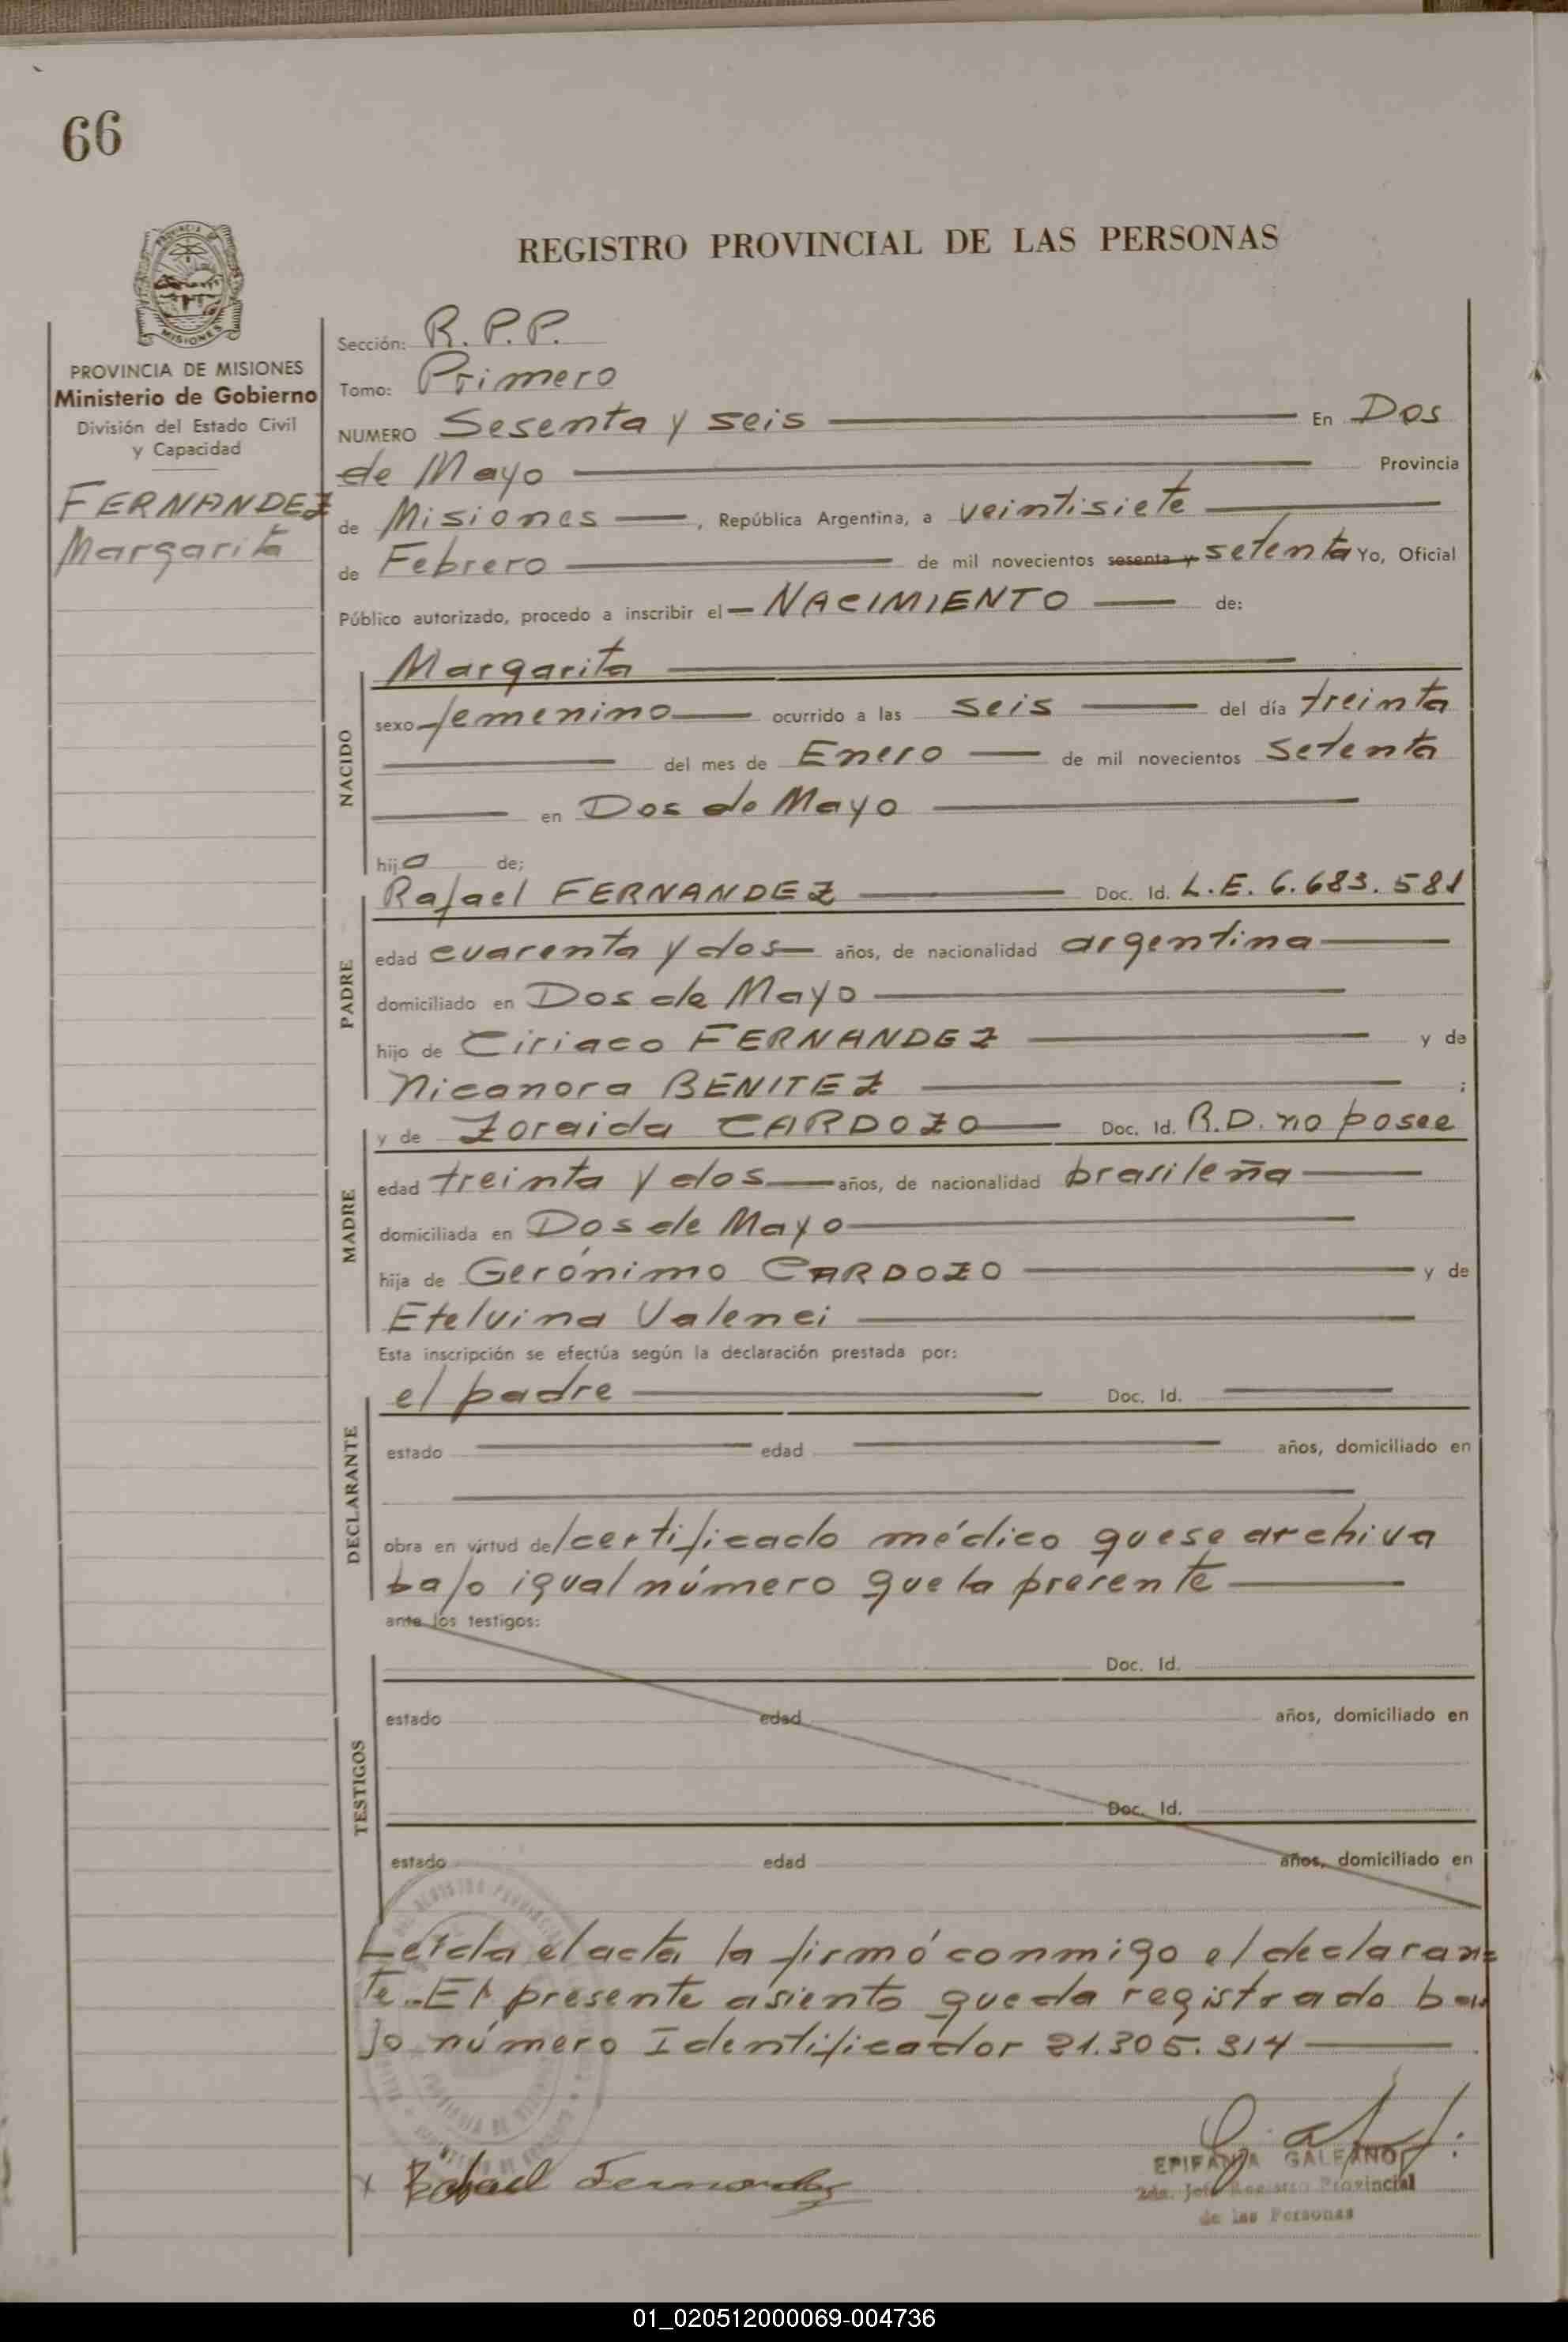 66
REGISTRO PROVINCIAL DE LAS PERSONAS
PROVINCIA DE MISIONES
Ministerio de Gobierno
División del Estado Civil
y Capacidad
FERNANDEZ
Margarita
Sección: R.P.P.
Tomo: Primero
NUMERO Sesenta y seis En Dos
de Mayo Provincia
de Misiones, República Argentina, a veintisiete
de Febrero de mil novecientos sesenta y setenta Yo, Oficial
Público autorizado, procedo a inscribir el NACIMIENTO de:
NACIDO
Margarita
sexo femenino ocurrido a las seis del día treinta
del mes de Enero de mil novecientos setenta
en Dos de Mayo
hija de;
PADRE
Rafael FERNANDEZ Doc. Id. L.E. 6.683.581
edad cuarenta y dos años, de nacionalidad argentina
domiciliado en Dos de Mayo
hijo de Ciriaco FERNANDEZ y de
Nicanora BENITEZ ;
MADRE
y de Zoraida CARDOZO Doc. Id. R.D. no posee
edad treinta y dos años, de nacionalidad brasileña
domiciliada en Dos de Mayo
hija de Gerónimo CARDOZO y de
Etelvina Valenci
Esta inscripción se efectúa según la declaración prestada por:
DECLARANTE
el padre Doc. Id.
estado edad años, domiciliado en
obra en virtud del certificado médico que se archiva
bajo igual número que la presente
ante los testigos:
TESTIGOS
Doc. Id.
estado edad años, domiciliado en
Doc. Id.
estado edad años, domiciliado en
Leída el acta la firmó conmigo el declaran=
te.- El presente asiento queda registrado ba
jo número Identificador 21.305.314
x Rafael Fernandez
EPIFANIA GALEANO
2da. Jefe Registro Provincial
de las Personas
01_020512000069-004736